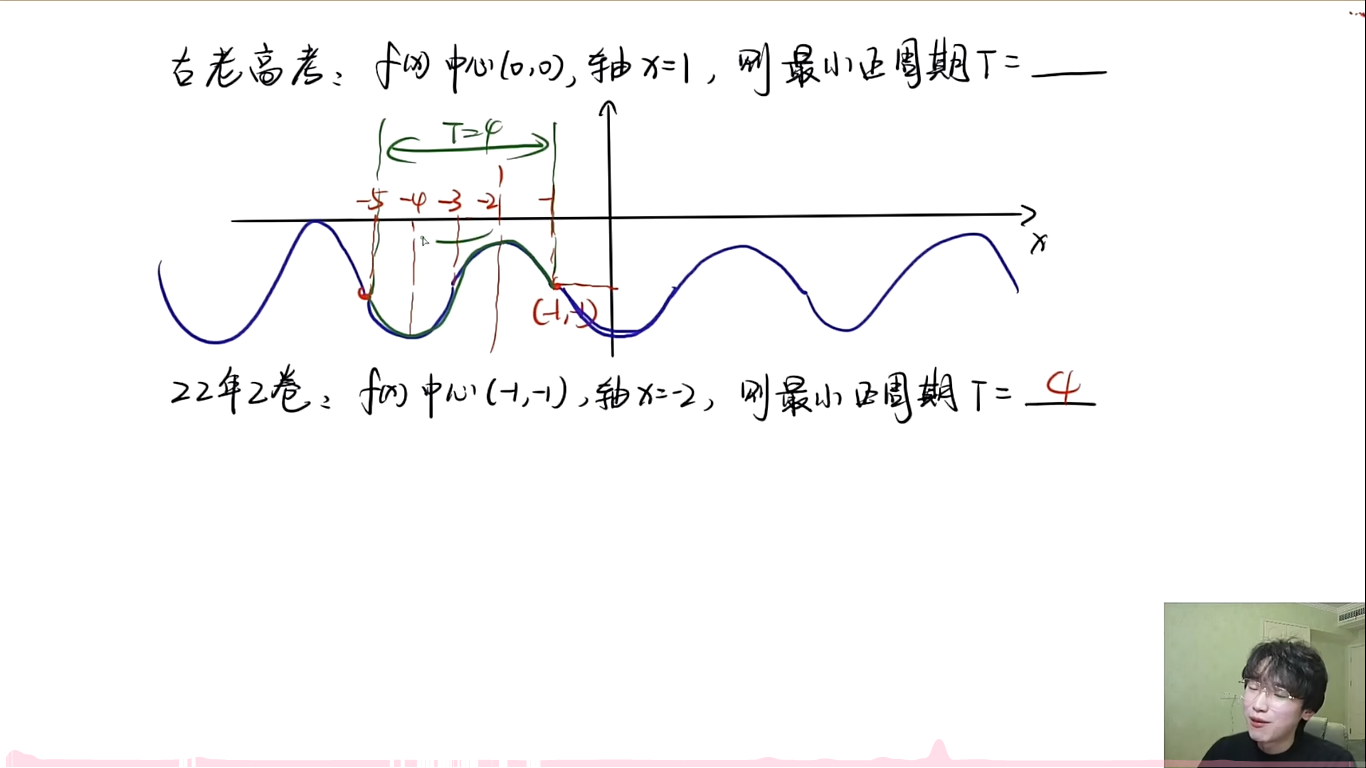 古老高考：f(x) 中心(0,0)，轴 x=1，则最小正周期T=____
T=4
-5 -4 -3 -2 -1
x
(-1,-1)
22年2卷：f(x) 中心(-1,-1)，轴x=-2，则最小正周期T=4